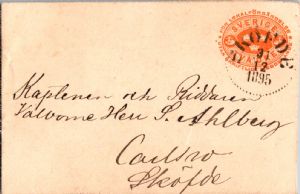 SVERIGE
SKÖFDE
31
12
1895
Kaplenen och Riddaren
Välborne Herr S. Ahlberg
Carlsro
Sköfde